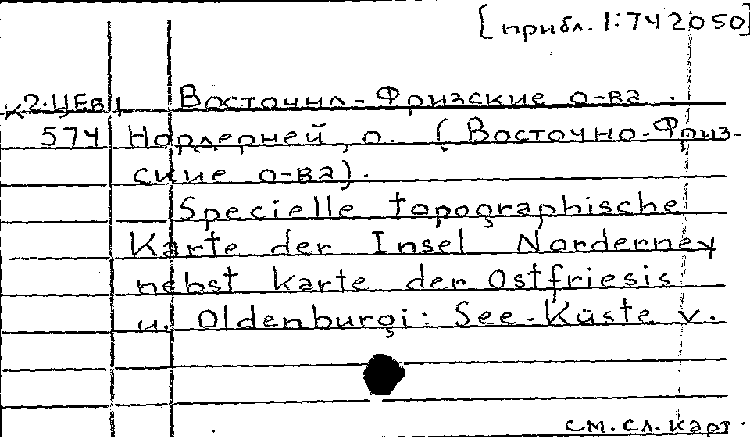 [прибл. 1:742050]
К2-ЦЕВ/ Восточно-Фризские о-ва.
574 Нордерней, о. (Восточно-Фриз-
ские о-ва).
Specielle topographische
Karte der Insel Norderney
nebst Karte der Ostfriesis
u. Oldenburgi: See-Küste v.
см. сл. карт.